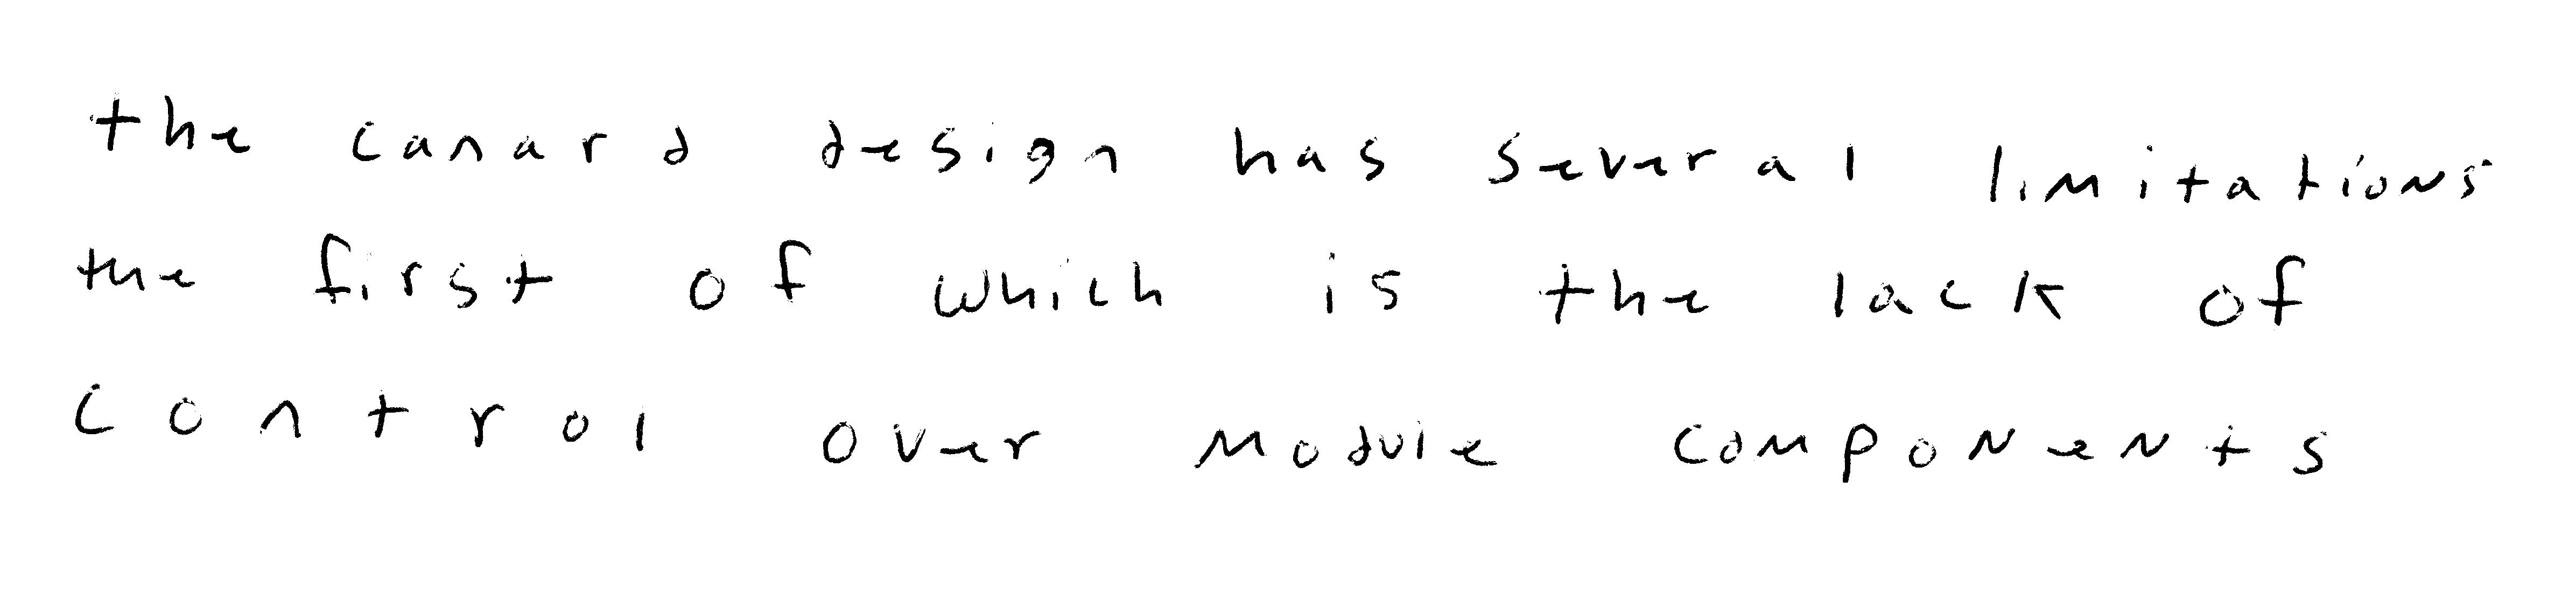 the canard design has several limitations
the first of which is the lack of
control over module components